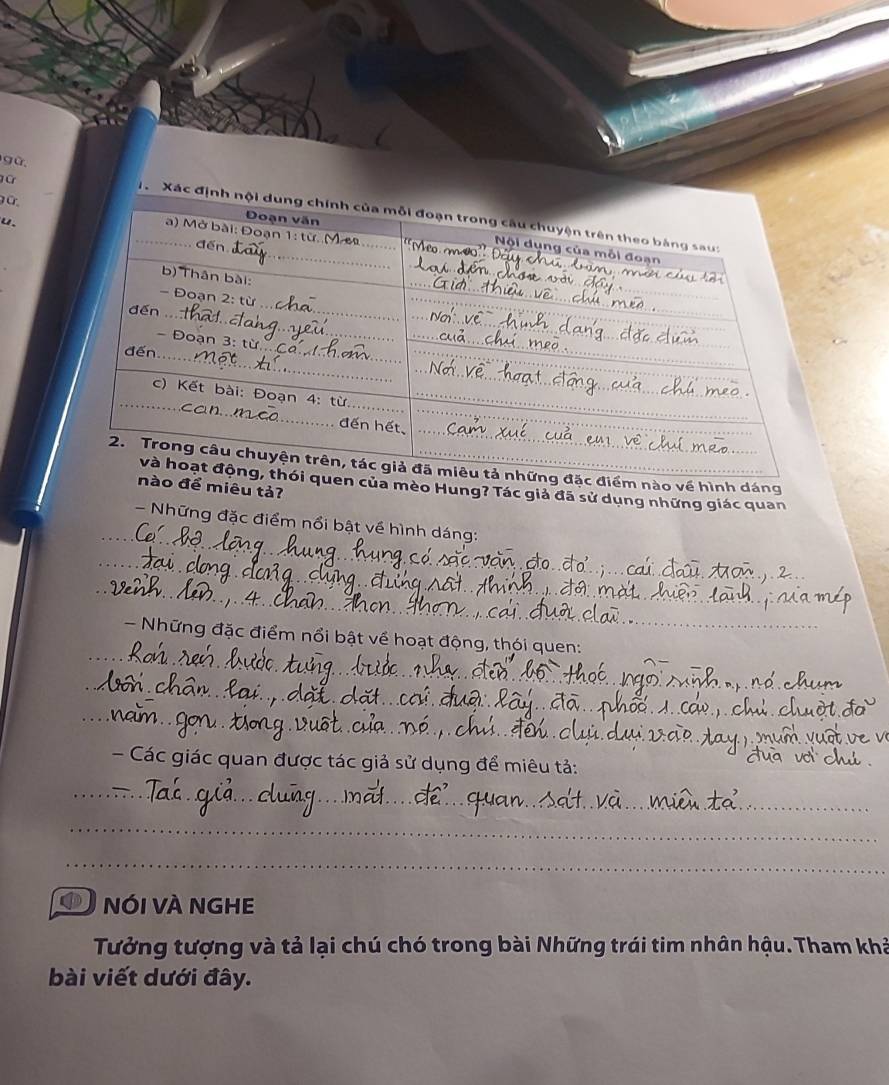 gữ.
gữ
gữ.
u.
1. Xác định nội dung chính của mỗi đoạn trong câu chuyện trên theo bảng sau:
Đoạn văn
Nội dung của mỗi đoạn
a) Mở bài: Đoạn 1: từ Meo
đến tay
"Meo meo". Đấy chú bạn mới của tôi
lại đến chơi với đấy.
Giới thiệu về chú mèo.
b) Thân bài:
– Đoạn 2: từ chà
đến thật đáng yêu
Nói về hình dáng đặc điểm
của chú mèo.
– Đoạn 3: từ Có 1 hôm
đến một tí.
Nói về hoạt động của chú mèo.
c) Kết bài: Đoạn 4: từ
con mèo
đến hết.
Cảm xúc của em về chú mèo
2. Trong câu chuyện trên, tác giả đã miêu tả những đặc điểm nào về hình dáng
và hoạt động, thói quen của mèo Hung? Tác giả đã sử dụng những giác quan
nào để miêu tả?
– Những đặc điểm nổi bật về hình dáng:
Có bộ lông hung hung có sắc vằn đo đỏ, cái đầu tròn, 2
tai dong dỏng dựng đứng rất thính, đôi mắt hiền lành, ria mép
vểnh lên, 4 chân thon thon, cái đuôi dài
– Những đặc điểm nổi bật về hoạt động, thói quen:
Rón rén bước từng bước nhẹ đến bồ thóc ngồi rình, nó chụm
bốn chân lại, dặt dặt cái đuôi lấy đà phốc 1 cái, chú chuột đã
nằm gọn trong vuốt của nó, chú đến dụi dụi vào tay, muốn vuốt ve và
đùa với chú.
– Các giác quan được tác giả sử dụng để miêu tả:
– Tác giả dùng mắt để quan sát và miêu tả
NÓI VÀ NGHE
Tưởng tượng và tả lại chú chó trong bài Những trái tim nhân hậu. Tham khả
bài viết dưới đây.